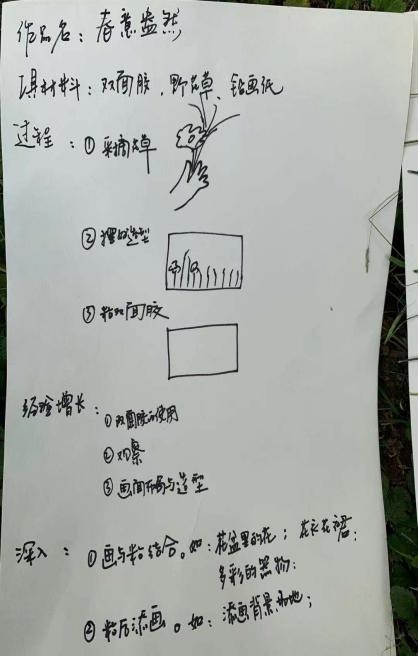 作品名：春意盎然
工具材料：双面胶，野花草、铅画纸
过程：①采摘花草
②摆好造型
③粘双面胶
经验增长：
①双面胶的使用
②观察
③画面布局与造型
深入：①画与粘结合。如：花盆里的花；花衣花裙；
多彩的器物；
②粘后添画。如：添画背景场地；